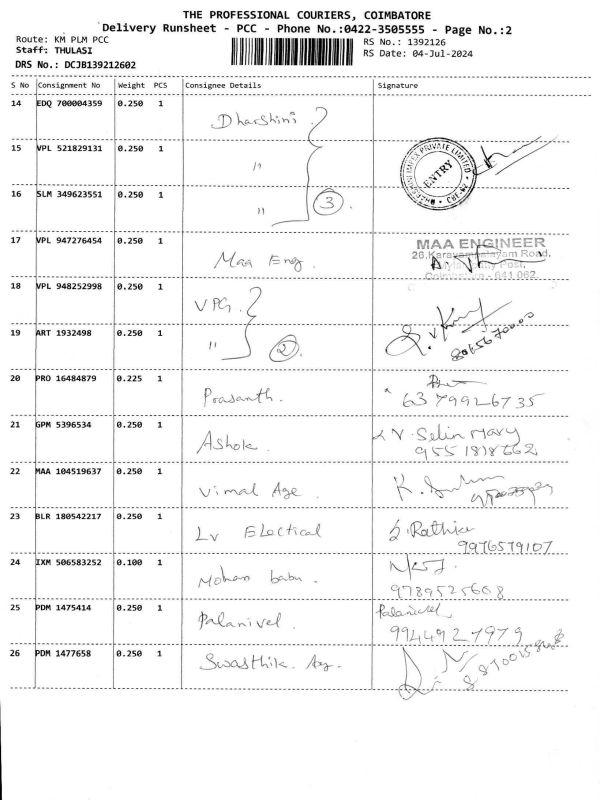 THE PROFESSIONAL COURIERS, COIMBATORE
Delivery Runsheet - PCC - Phone No.:0422-3505555 - Page No.:2
Route: KM PLM PCC
RS No.: 1392126
Staff: THULASI
RS Date: 04-Jul-2024
DRS No.: DCJB139212602
S No Consignment No Weight PCS Consignee Details Signature
14 EDQ 700004359 0.250 1 Dharshini
15 VPL 521829131 0.250 1 "
PRIVATE LIMITED
ENTRY
16 SLM 349623551 0.250 1 " 3
17 VPL 947276454 0.250 1 Maa Eng.
MAA ENGINEER
18 VPL 948252998 0.250 1 VPG.
19 ART 1932498 0.250 1 " 2
20 PRO 16484879 0.225 1 Prasanth.
6379926735
21 GPM 5396534 0.250 1 Ashok.
Selin Mary
9551818662
22 MAA 104519637 0.250 1 Vimal Age.
23 BLR 180542217 0.250 1 Lv Electical
S. Rathika
9976579107
24 IXM 506583252 0.100 1 Mohan babu.
9789525608
25 PDM 1475414 0.250 1 Palanivel.
Palanivel
9944927979
26 PDM 1477658 0.250 1 Swasthik. Ag.